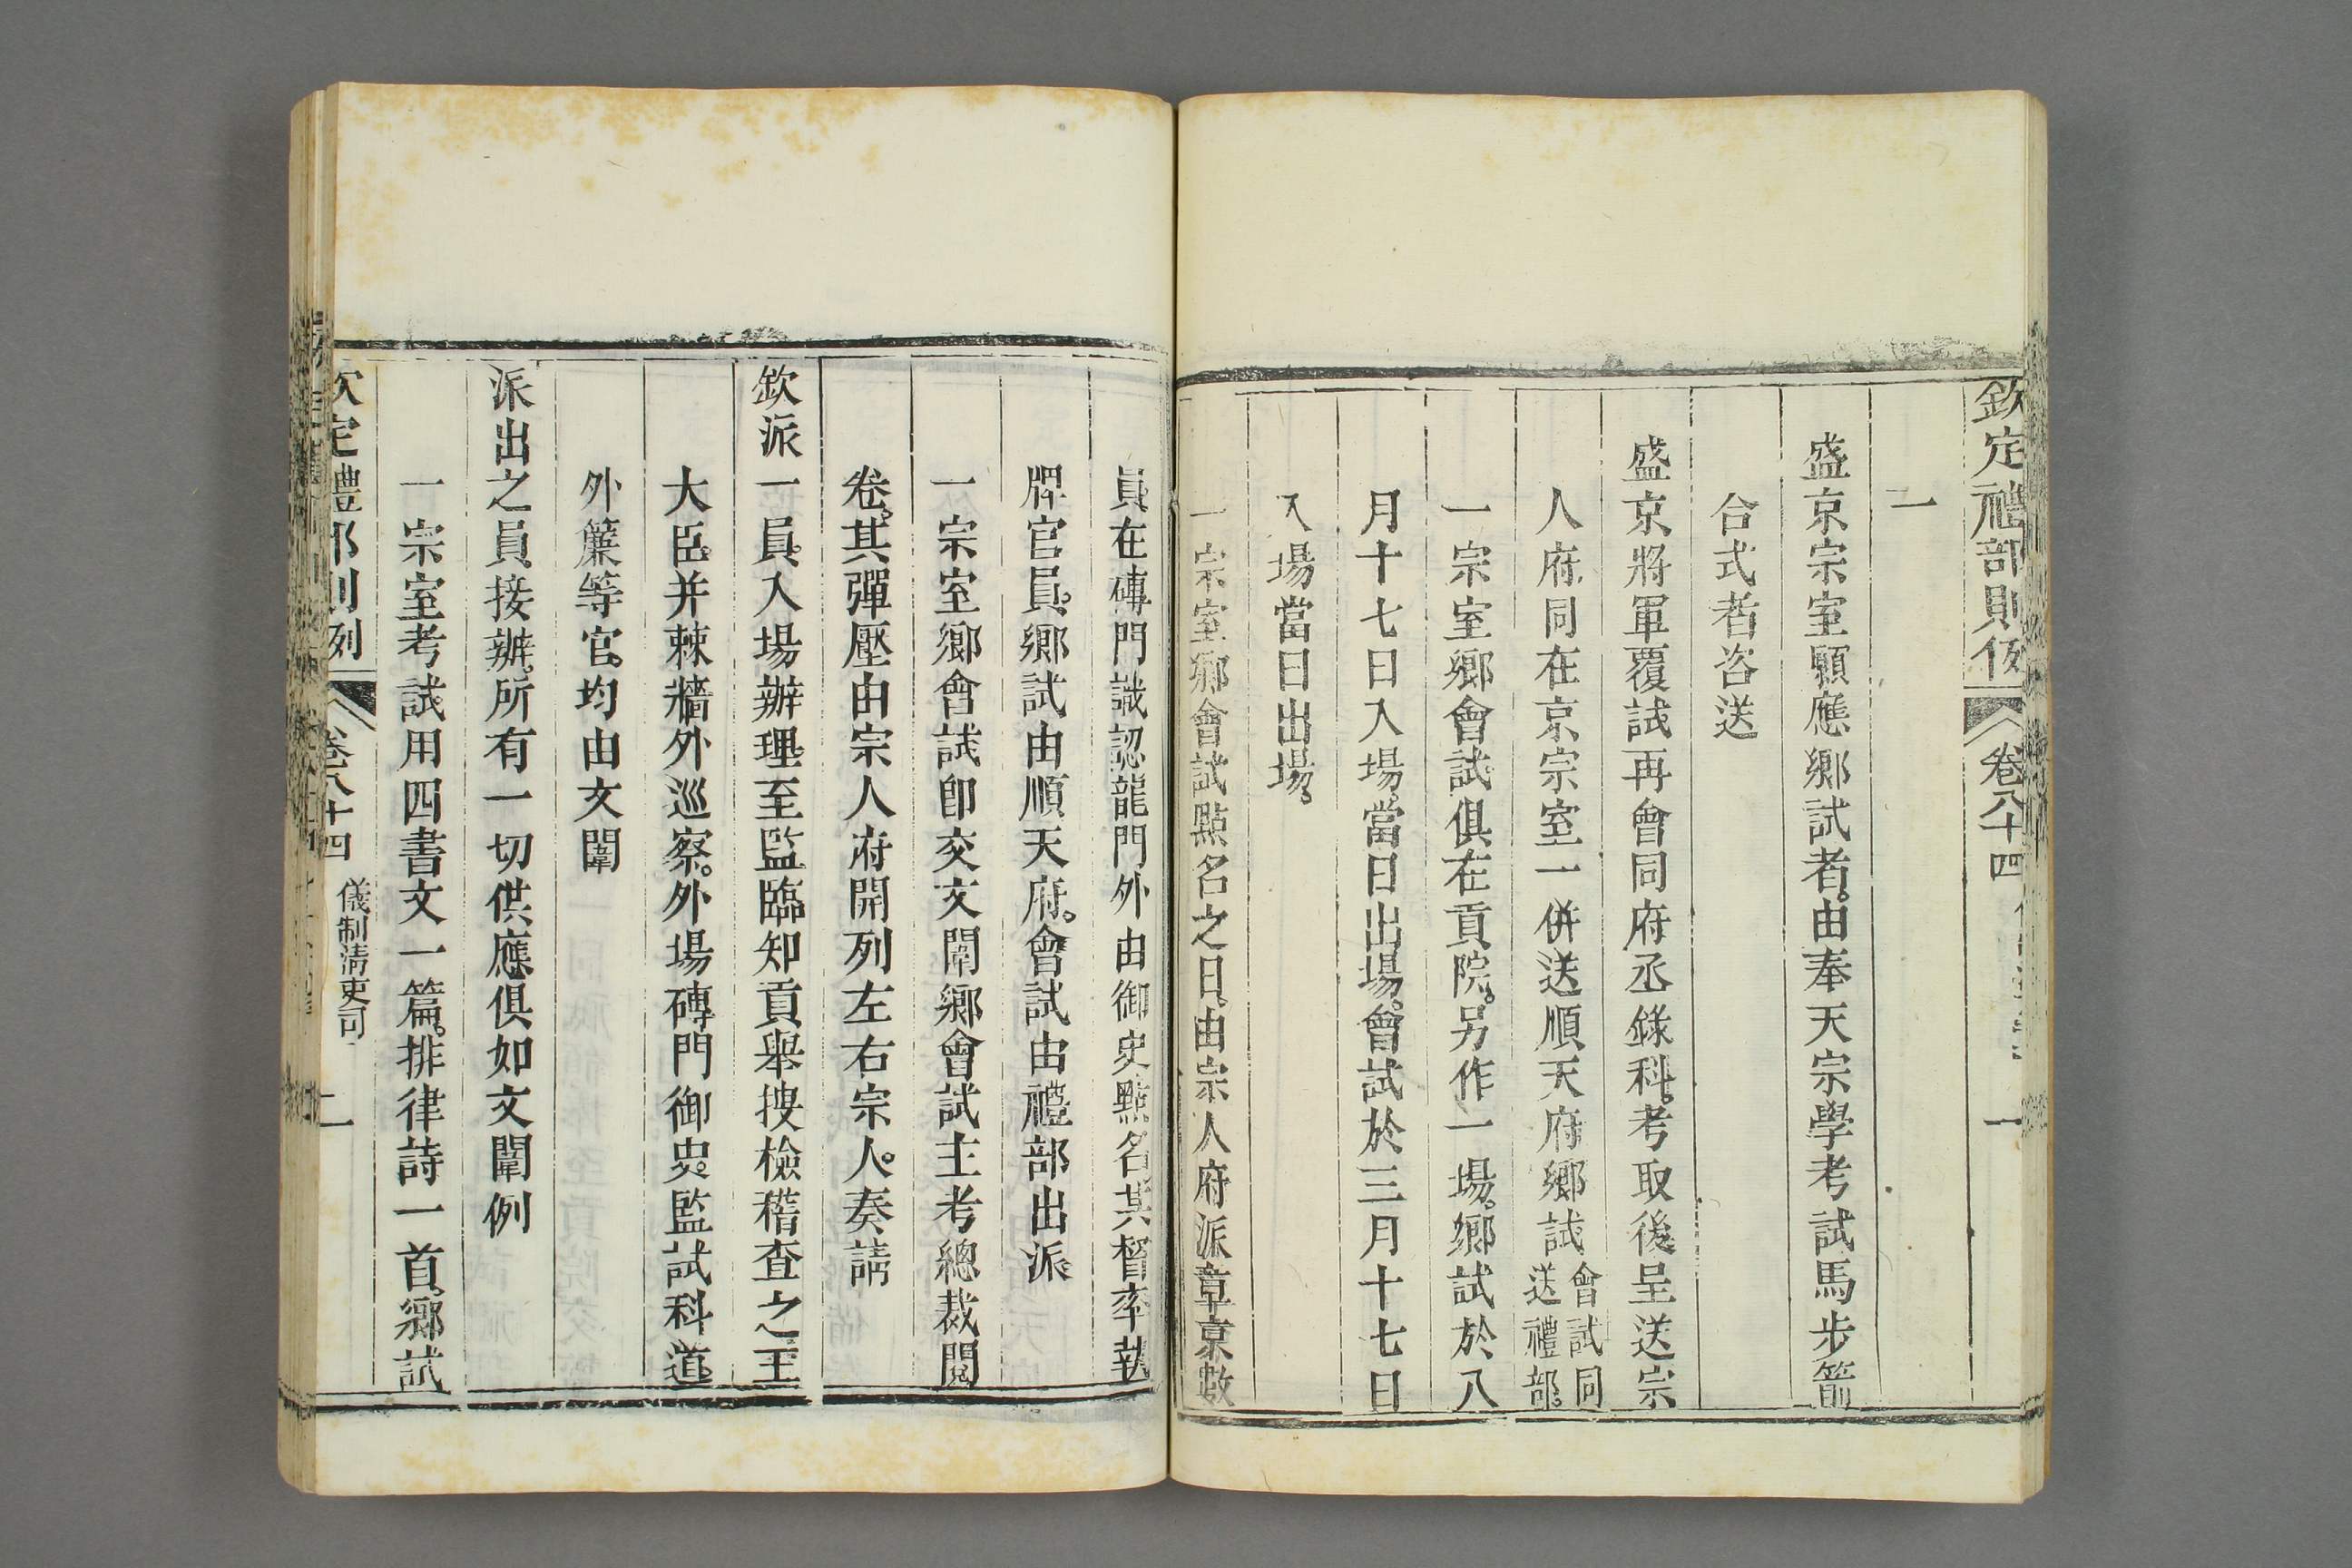 欽定禮部則例 卷八十四 一
一
盛京宗室願應鄉試者由奉天宗學考試馬步箭
合式者咨送
盛京將軍覆試再會同府丞錄科考取後呈送宗
人府同在京宗室一併送順天府鄉試會試同送禮部
一宗室鄉會試俱在貢院另作一場鄉試於八
月十七日入場當日出場會試於三月十七日
入場當日出場
一宗室鄉會試點名之日由宗人府派章京數
員在磚門識認龍門外由御史點名其督率執
牌官員鄉試由順天府會試由禮部出派
一宗室鄉會試卽交文闈鄉會試主考總裁閱
卷其彈壓由宗人府開列左右宗人奏請
欽派一員入場辦理至監臨知貢舉搜檢稽查之王
大臣并棘牆外巡察外場磚門御史監試科道
外簾等官均由文闈
派出之員接辦所有一切供應俱如文闈例
一宗室考試用四書文一篇排律詩一首鄉試
欽定禮部則例 卷八十四 儀制淸吏司 二